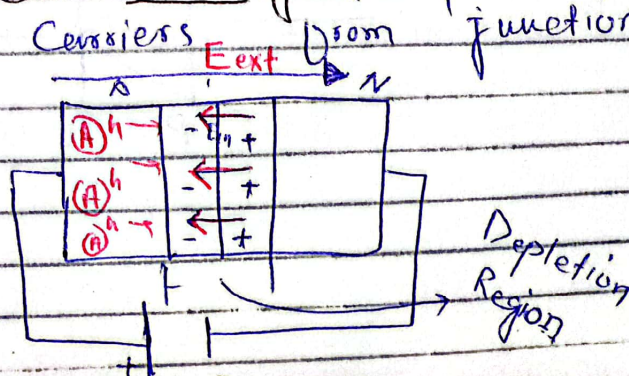 Carriers from junction
E ext
N
A h - +
A h - +
A h - +
Depletion
Region
+